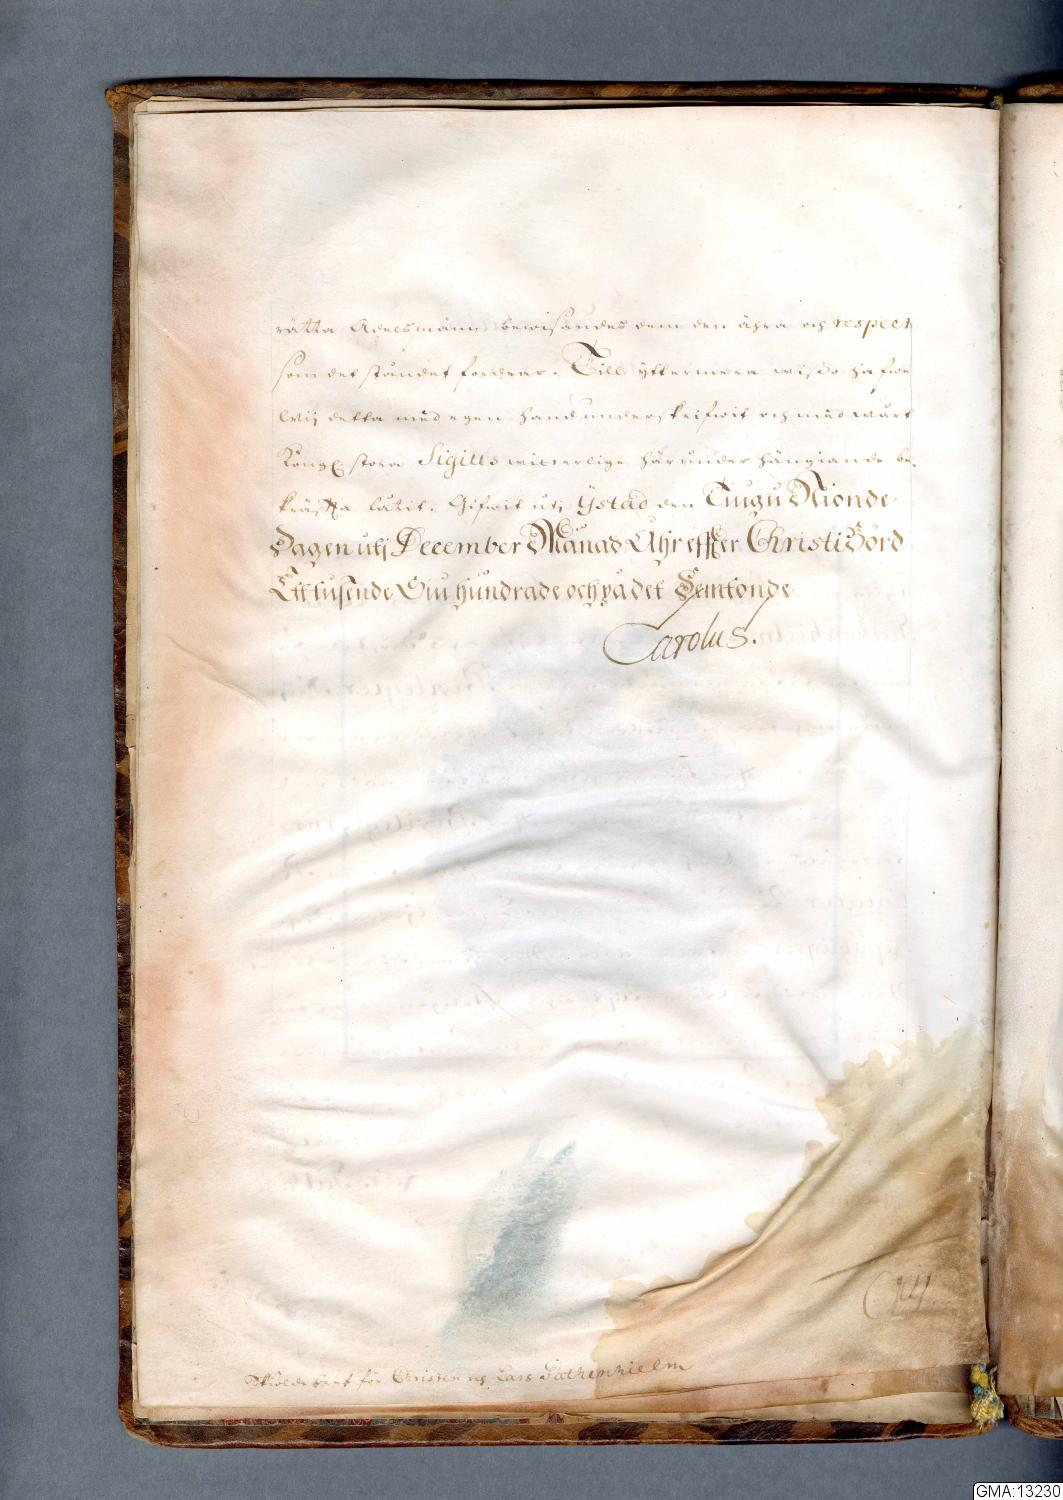 rätta Adelsmän bewisandes dem den ähra och respect
som det ståndet fordrar. Till yttermera wißo hafwe
Wij detta med egen hand underskrifwit och med wårt
Kongl. stora Sigill witterlige här under hängiande be-
kräffta låtit. Gifwit utj Ÿstad den Tiugu Nionde
Dagen utj December Månad Ahr effter Christi Börd
Ett tusende Siu hundrade och på det Femtonde
Carolus.
Skölde bref för Christen och Lars Gathenhielm
GMA:13230